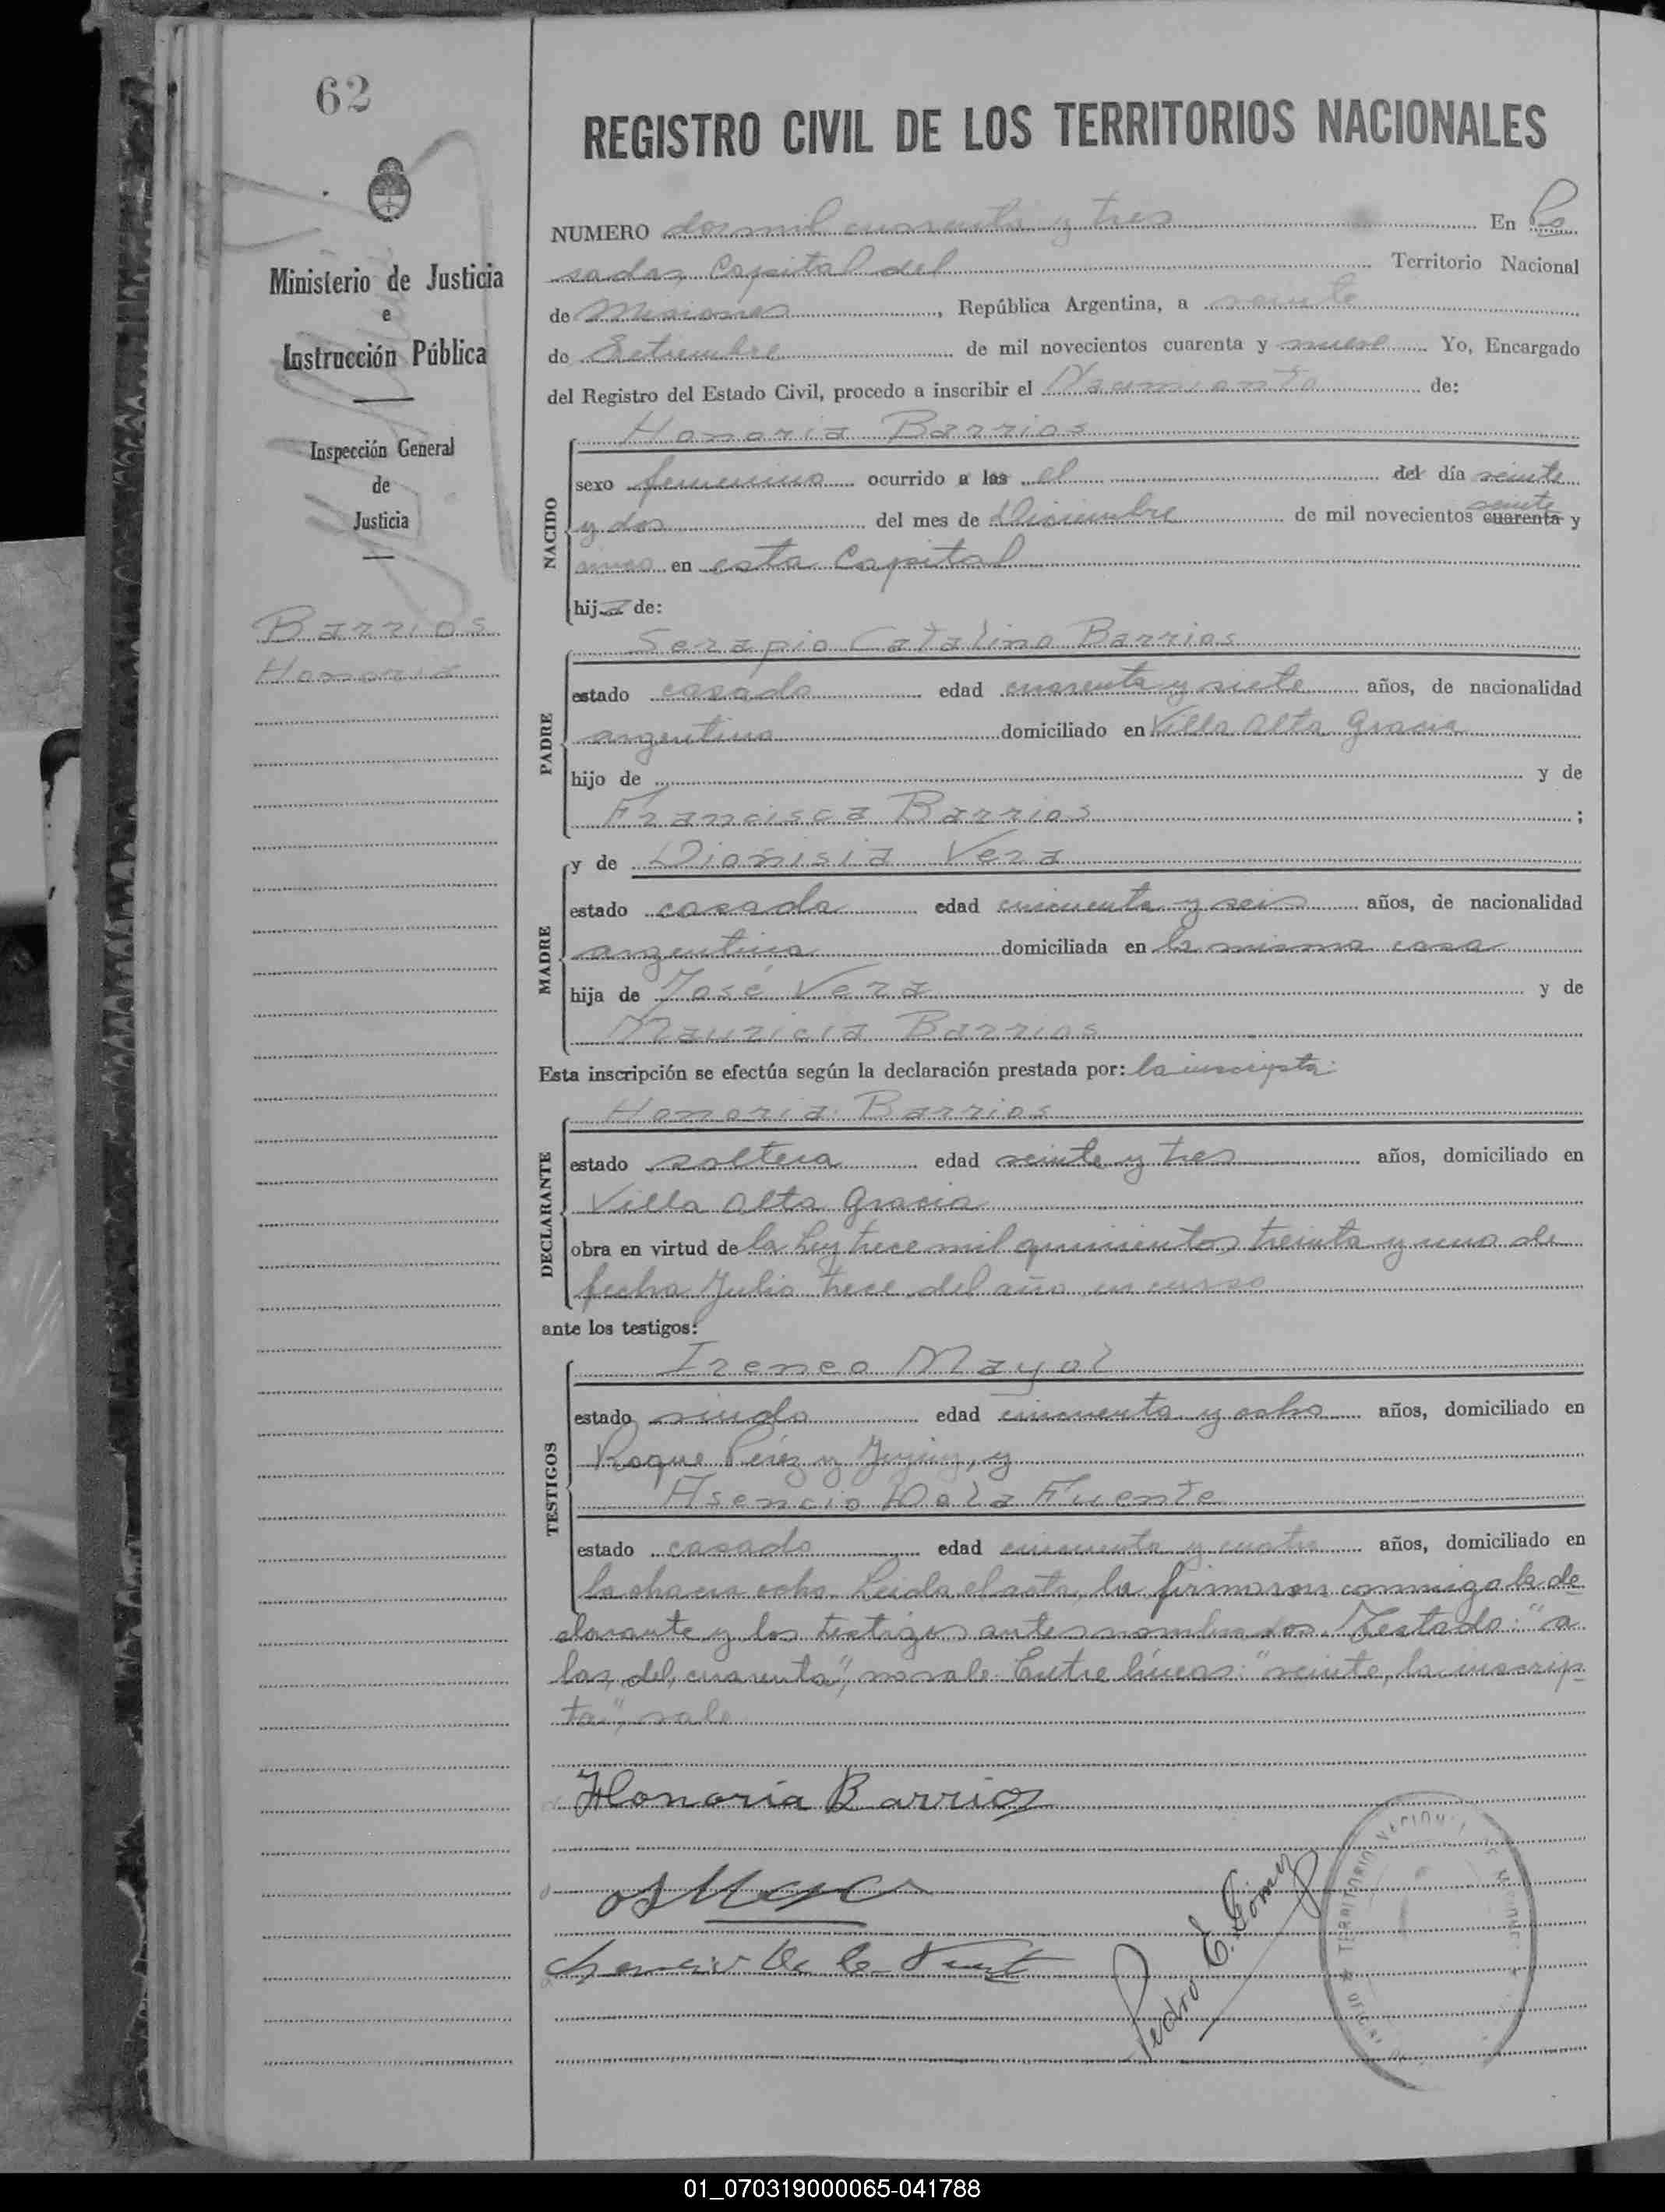 62
REGISTRO CIVIL DE LOS TERRITORIOS NACIONALES
Ministerio de Justicia
e
Instrucción Pública
Inspección General
de
Justicia
Barrios
Honoria
NUMERO dos mil cuarenta y tres En Po
sadas, Capital del Territorio Nacional
de Misiones, República Argentina, a veinte
de Setiembre de mil novecientos cuarenta y nueve Yo, Encargado
del Registro del Estado Civil, procedo a inscribir el Nacimiento de:
NACIDO
Honoria Barrios
sexo femenino ocurrido a las el del día veinte
y dos del mes de Diciembre de mil novecientos cuarenta veinte y
en esta Capital
hija de:
PADRE
Serapio Catalino Barrios
estado casado edad cuarenta y siete años, de nacionalidad
argentina domiciliado en Villa Alta Gracia
hijo de y de
Francisca Barrios ;
MADRE
y de Dionisia Vera
estado casada edad cincuenta y seis años, de nacionalidad
argentina domiciliada en la misma casa
hija de José Vera y de
Mauricia Barrios
Esta inscripción se efectúa según la declaración prestada por: la inscripta:
DECLARANTE
Honoria Barrios
estado soltera edad veinte y tres años, domiciliado en
Villa Alta Gracia
obra en virtud de la Ley trece mil quinientos treinta y uno de
fecha Julio trece del año en curso
ante los testigos:
TESTIGOS
Ireneo Mayol
estado viudo edad cincuenta y ocho años, domiciliado en
Roque Pérez y Jujuy, y
Asencio De la Fuente
estado casado edad cincuenta y cuatro años, domiciliado en
la chacra ocho. Leída el acta, la firmaron conmigo la de
clarante y los testigos antes nombrados. Testado: "a
las, del, cuarenta", no vale. Entre líneas: "veinte, la inscrip
ta", vale
Honoria Barrios
Asencio De la Fuente
Pedro E. Gómez
01_070319000065-041788